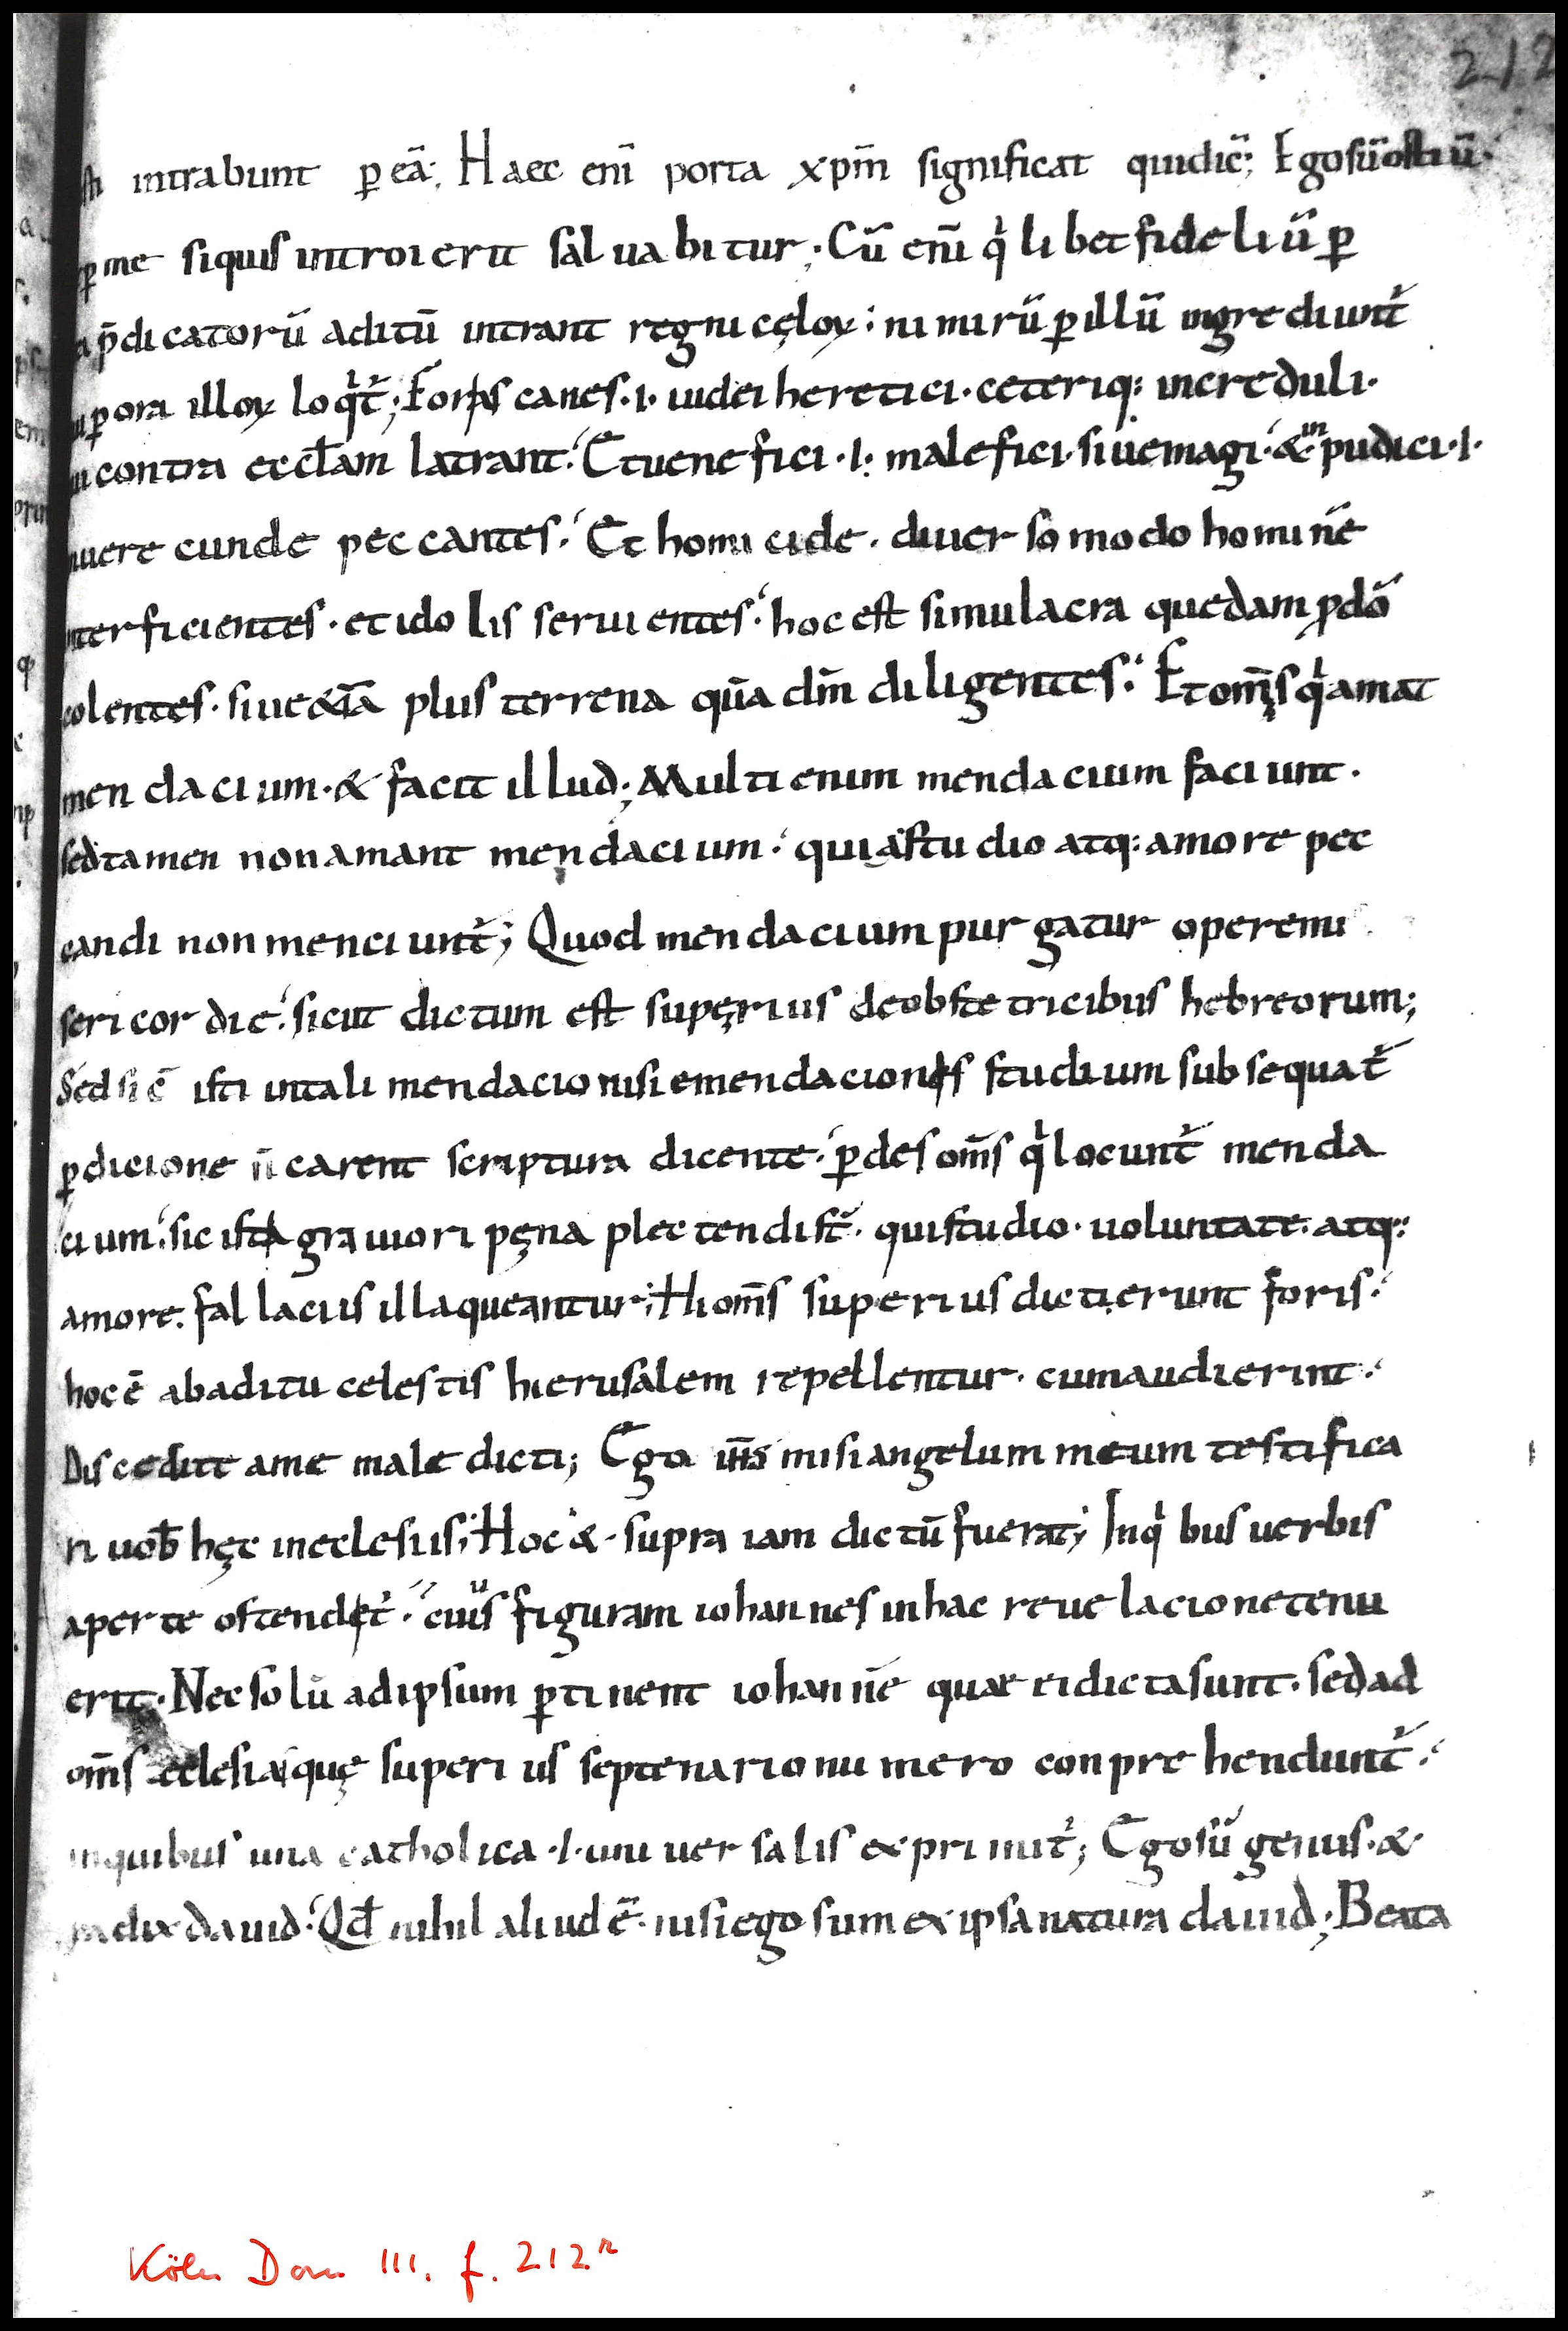 212
sti intrabunt ꝑ eā; Haec enī porta xp̄m significat qui dic̄; Ego sū ostiū·
ꝑ me siquis introierit saluabitur; Cū enī qͥlibet fideliū ꝑ
p̄dicatorū aditū intrant regni cęloꝝ; nimirū ꝑ illū ingrediunt᷑
ꝑ ora illoꝝ loqͥt᷑; Foris canes·i·iudei heretici·ceteriq: increduli·
contra eccl̄am latrant; Et uenefici·i·malefici·siue magi·& inpudici·i·
inuerecunde peccantes; Et homicide·diuerso modo hominē
interficientes·et idolis seruientes; hoc est simulacra quedam p̱ dō
colentes·siue &iā plus terrena quā dm̄ diligentes; Et om̄s qͥ amat
mendacium·& facit illud; Multi enim mendacium faciunt·
sed tamen non amant mendacium; quia studio atq: amore pec
candi non menciunt᷑; Quod mendacium purgatur opere mi
sericordie; sicut dictum est superius de obstetricibus hebreorum;
Sed si ē isti in tali mendacio nisi emendacionis studium subsequat᷑
ꝑdicione n̄ carent scriptura dicente; ꝑdes om̄s qͥ locunt᷑ menda
cium; sic ista grauiori pęna plectendi st̄·qui studio·uoluntate·atq:
amore·fallaciis illaqueantur; Hi om̄s superius dicti erunt foris;
hoc ē ab aditu celestis hierusalem repellentur·cum audierint;
Discedite a me maledicti; Ego ih̄s misi angelum meum testifica
ri uob̄ hęc in eclesiis; Hoc &·supra iam dictū fuerat; In qͥbus uerbis
aperte ostendit᷑; cuius figuram iohannes in hac reuelacione tenu
erit·Nec solū ad ipsum ꝑtinent iohannē quae ei dicta sunt·sed ad
om̄s eclesias quę superius septenario numero conprehendunt᷑;
in quibus una catholica·i·uniuersalis exprimit᷑; Ego sū genus·&
radix dauid; Qd̄ nihil aliud ē·nisi ego sum ex ipsa natura dauid; Beata
Köln Dom 111. f. 212ʳ